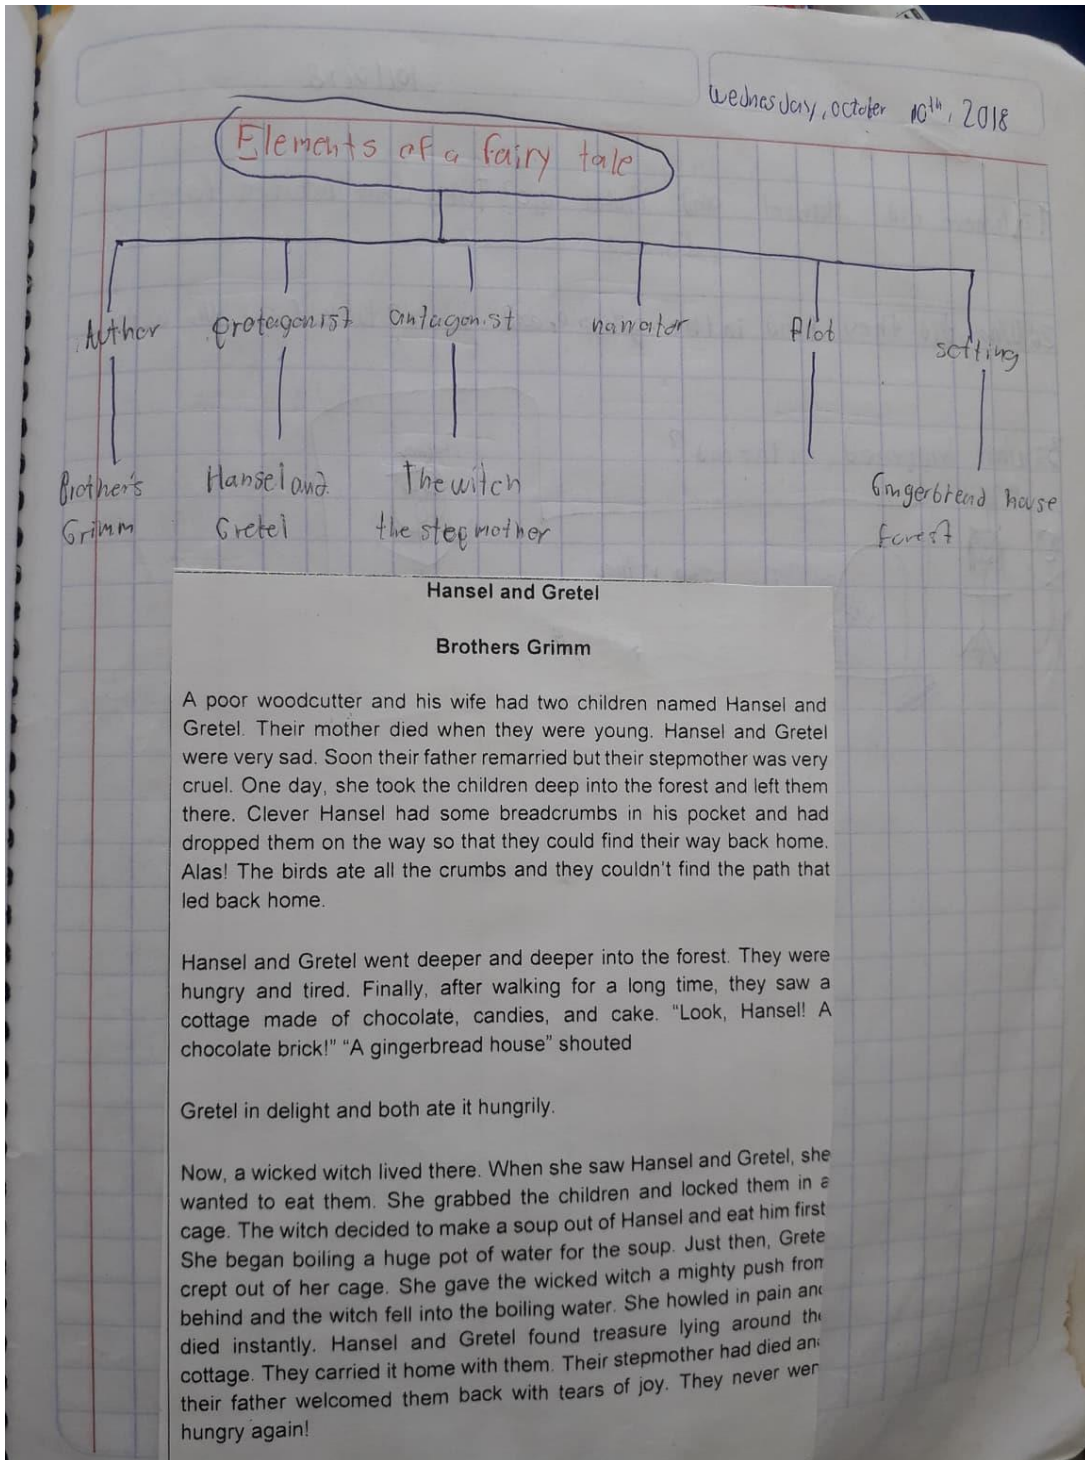 Wednesday, october 10th, 2018
Elements of a fairy tale
Author protagonist antagonist narrator Plot setting
Brother's Hansel and The witch Gingerbread house
Grimm Gretel the stepmother forest
Hansel and Gretel
Brothers Grimm
A poor woodcutter and his wife had two children named Hansel and
Gretel. Their mother died when they were young. Hansel and Gretel
were very sad. Soon their father remarried but their stepmother was very
cruel. One day, she took the children deep into the forest and left them
there. Clever Hansel had some breadcrumbs in his pocket and had
dropped them on the way so that they could find their way back home.
Alas! The birds ate all the crumbs and they couldn't find the path that
led back home.
Hansel and Gretel went deeper and deeper into the forest. They were
hungry and tired. Finally, after walking for a long time, they saw a
cottage made of chocolate, candies, and cake. “Look, Hansel! A
chocolate brick!” “A gingerbread house” shouted
Gretel in delight and both ate it hungrily.
Now, a wicked witch lived there. When she saw Hansel and Gretel, she
wanted to eat them. She grabbed the children and locked them in a
cage. The witch decided to make a soup out of Hansel and eat him first
She began boiling a huge pot of water for the soup. Just then, Grete
crept out of her cage. She gave the wicked witch a mighty push from
behind and the witch fell into the boiling water. She howled in pain and
died instantly. Hansel and Gretel found treasure lying around the
cottage. They carried it home with them. Their stepmother had died an
their father welcomed them back with tears of joy. They never wer
hungry again!